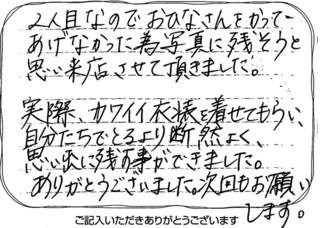 2人目なのでおひなさんをかって
あげなかった為写真に残そうと
思い来店させて頂きました。
実際、カワイイ衣裳を着せてもらい、
自分たちでとるより断然よく、
思い出に残す事ができました。
ありがとうございました。次回もお願い
します。
ご記入いただきありがとうございます